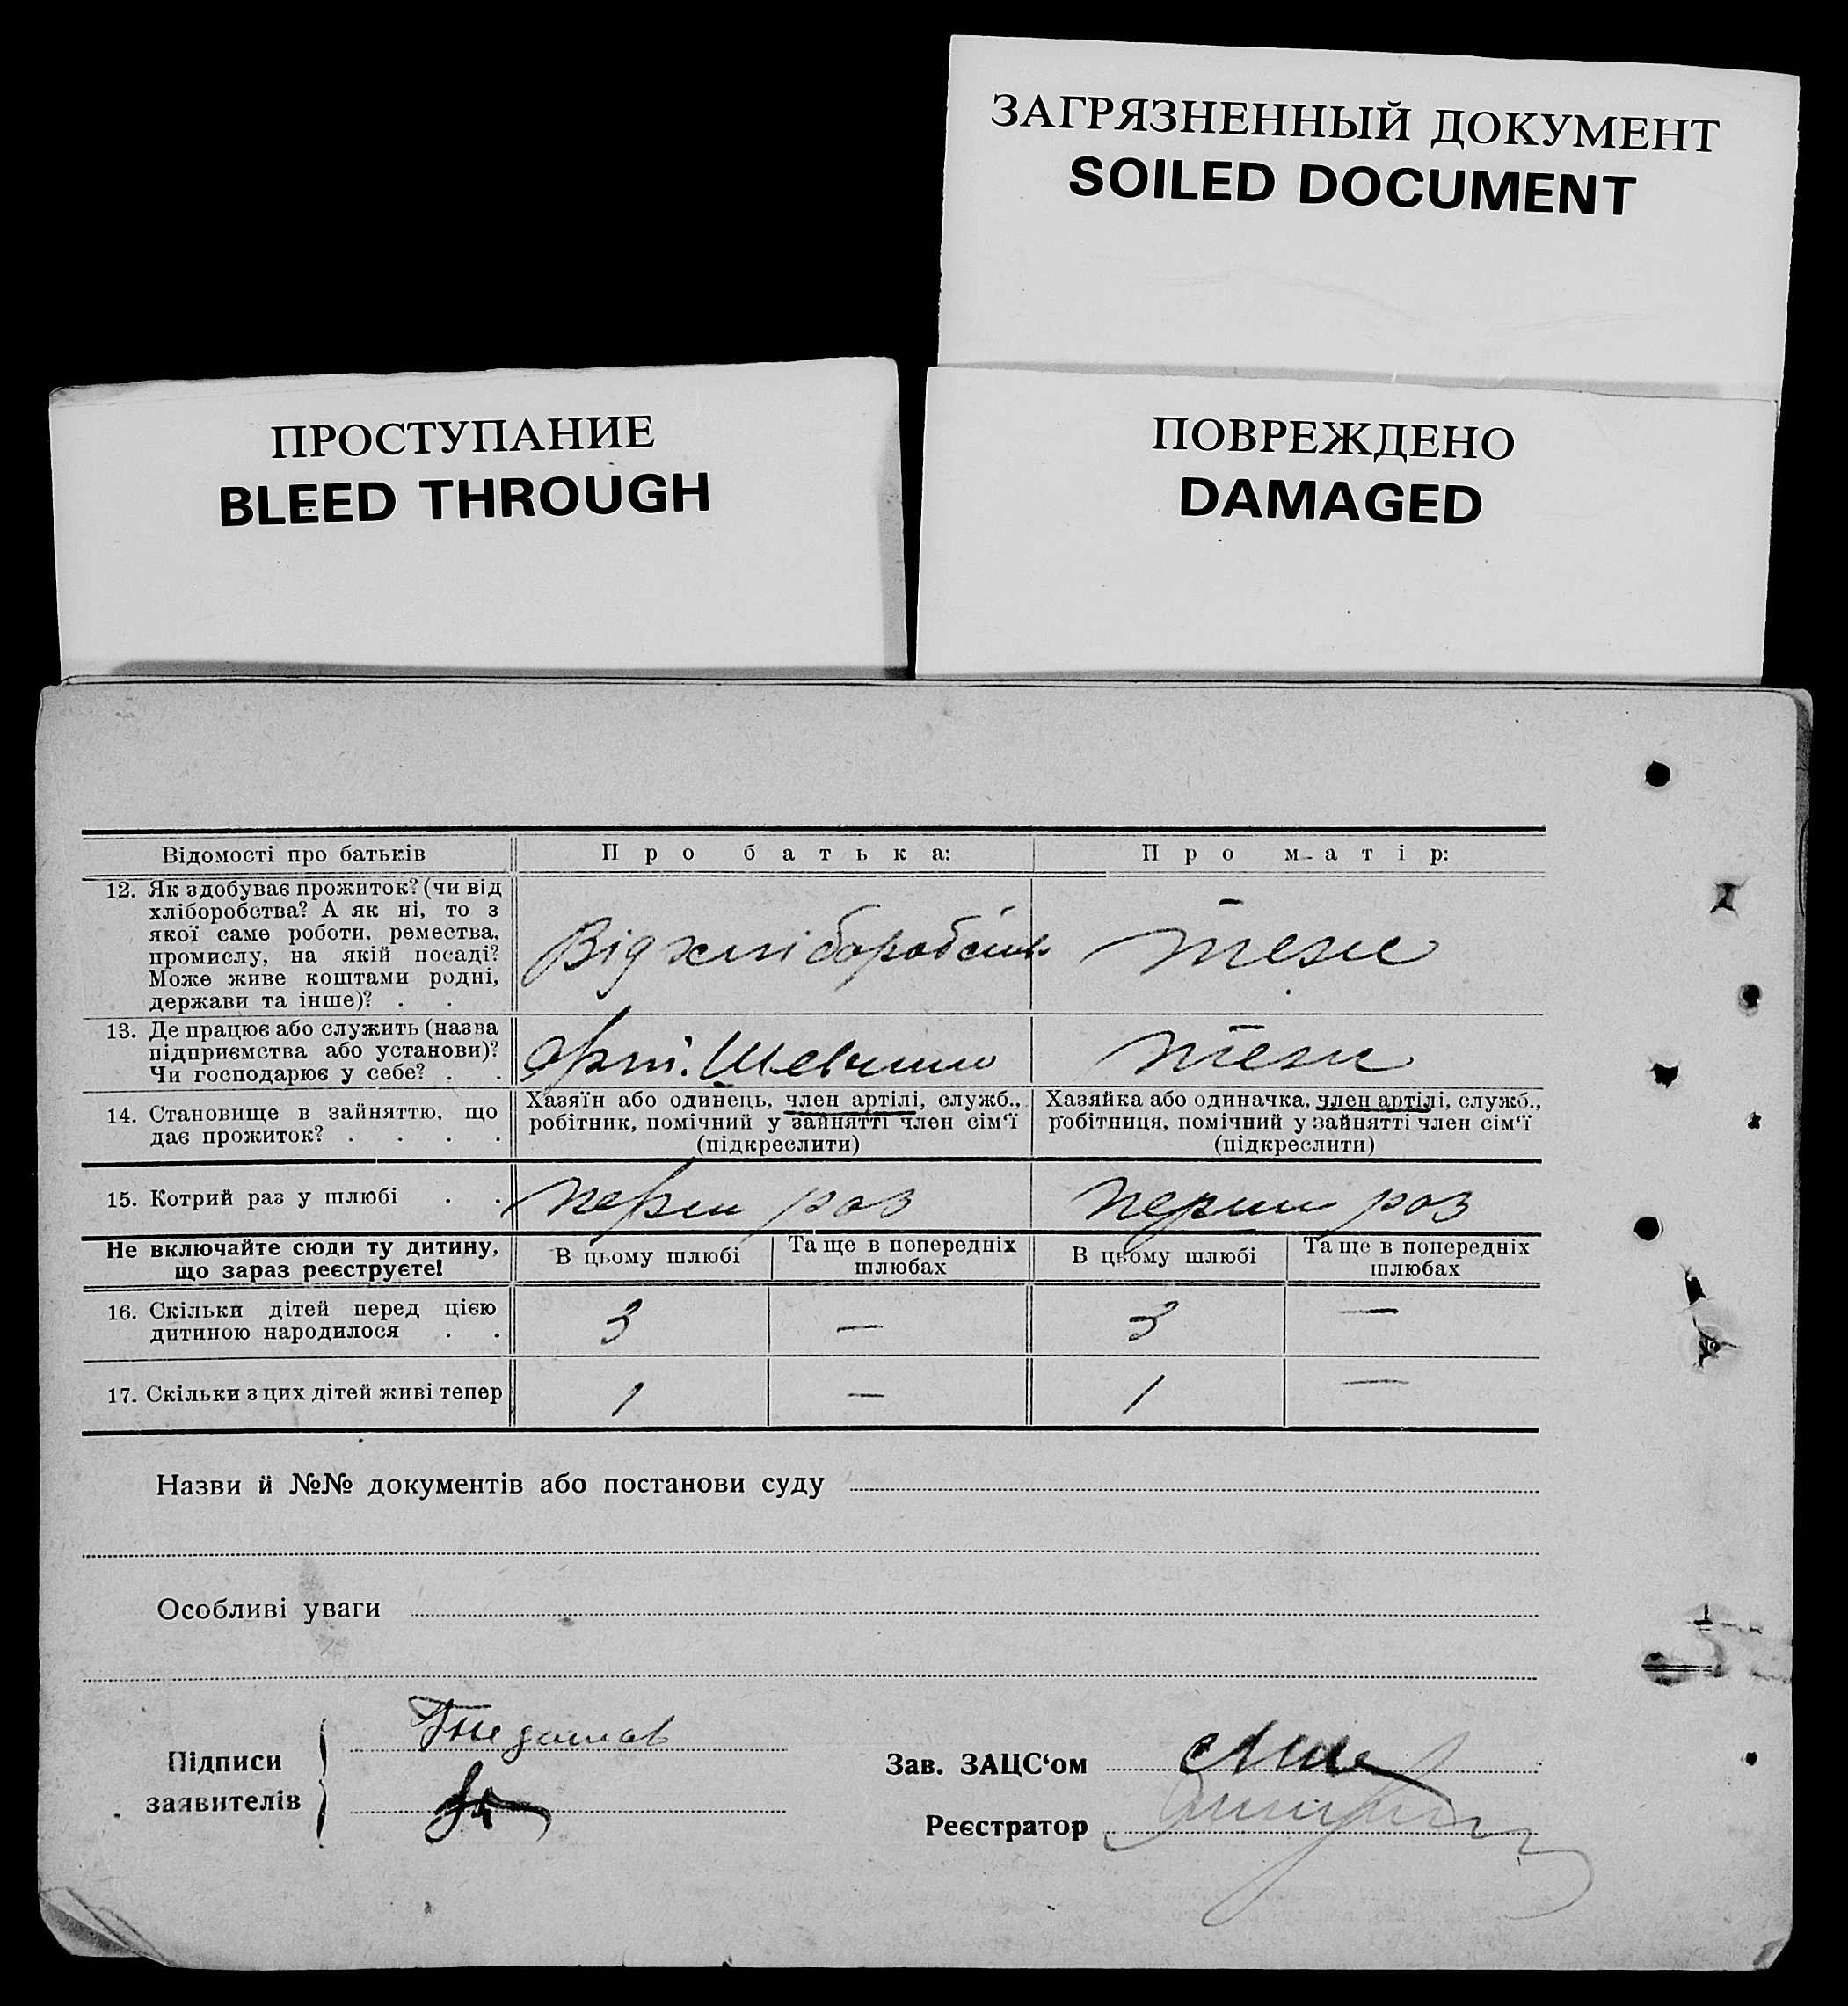 ЗАГРЯЗНЕННЫЙ ДОКУМЕНТ
SOILED DOCUMENT
ПРОСТУПАНИЕ
BLEED THROUGH
ПОВРЕЖДЕНО
DAMAGED
Відомості про батьків
Про батька:
Про матір:
12. Як здобуває прожиток? (чи від
хліборобства? А як ні, то з
якої саме роботи, ремества,
промислу, на якій посаді?
Може живе коштами родні,
держави та інше)? . .
Від хліборобств
теж
13. Де працює або служить (назва
підприємства або установи)?
Чи господарює у себе? . .
теж
14. Становище в зайняттю, що
дає прожиток? . . . .
Хазяїн або одинець, член артілі, служб.,
робітник, помічний у зайнятті член сім‘ї
(підкреслити)
Хазяйка або одиначка, член артілі, служб.,
робітниця, помічний у зайнятті член сім‘ї
(підкреслити)
15. Котрий раз у шлюбі . .
перши раз
перши раз
Не включайте сюди ту дитину,
що зараз реєструєте!
В цьому шлюбі
Та ще в попередніх
шлюбах
В цьому шлюбі
Та ще в попередніх
шлюбах
16. Скільки дітей перед цією
дитиною народилося . .
3
—
3
—
17. Скільки з цих дітей живі тепер
1
—
1
—
Назви й №№ документів або постанови суду
Особливі уваги
Підписи
заявителів
Зав. ЗАЦС‘ом
Реєстратор